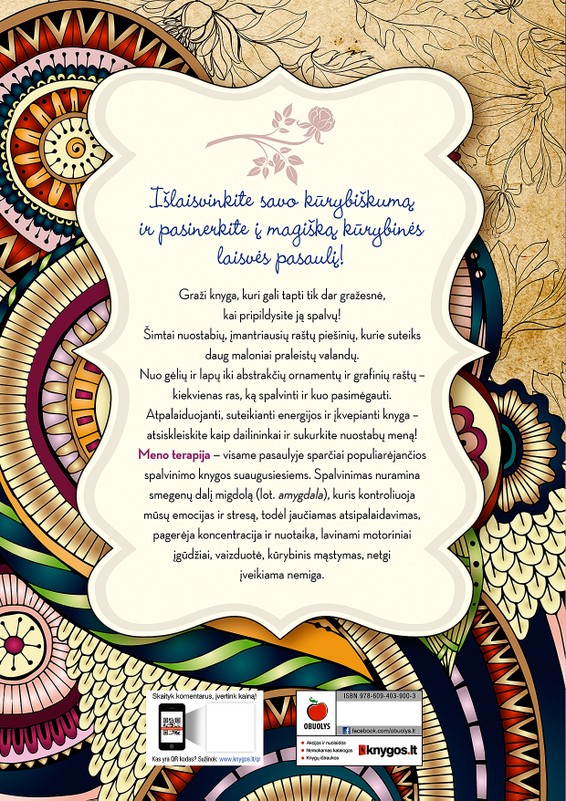 Išlaisvinkite savo kūrybiškumą
ir pasinerkite į magišką kūrybinės
laisvės pasaulį!
Graži knyga, kuri gali tapti tik dar gražesnė,
kai pripildysite ją spalvų!
Šimtai nuostabių, įmantriausių raštų piešinių, kurie suteiks
daug maloniai praleistų valandų.
Nuo gėlių ir lapų iki abstrakčių ornamentų ir grafinių raštų –
kiekvienas ras, ką spalvinti ir kuo pasimėgauti.
Atpalaiduojanti, suteikianti energijos ir įkvepianti knyga –
atsiskleiskite kaip dailininkai ir sukurkite nuostabų meną!
Meno terapija – visame pasaulyje sparčiai populiarėjančios
spalvinimo knygos suaugusiesiems. Spalvinimas nuramina
smegenų dalį migdolą (lot. amygdala), kuris kontroliuoja
mūsų emocijas ir stresą, todėl jaučiamas atsipalaidavimas,
pagerėja koncentracija ir nuotaika, lavinami motoriniai
įgūdžiai, vaizduotė, kūrybinis mąstymas, netgi
įveikiama nemiga.
Skaityk komentarus, įvertink kainą!
Kas yra QR kodas? Sužinok: www.knygos.lt/qr
OBUOLYS
ISBN 978-609-403-900-3
facebook.com/obuolys.lt
Akcijos ir nuolaidos
Nemokamas katalogas
Knygų ištraukos
knygos.lt